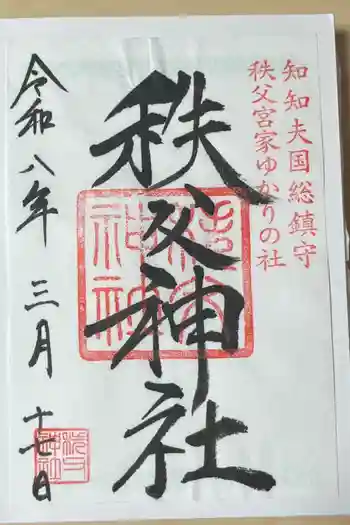 知知夫国総鎮守
秩父宮家ゆかりの社
秩父神社
令和八年三月十七日
秩父神社